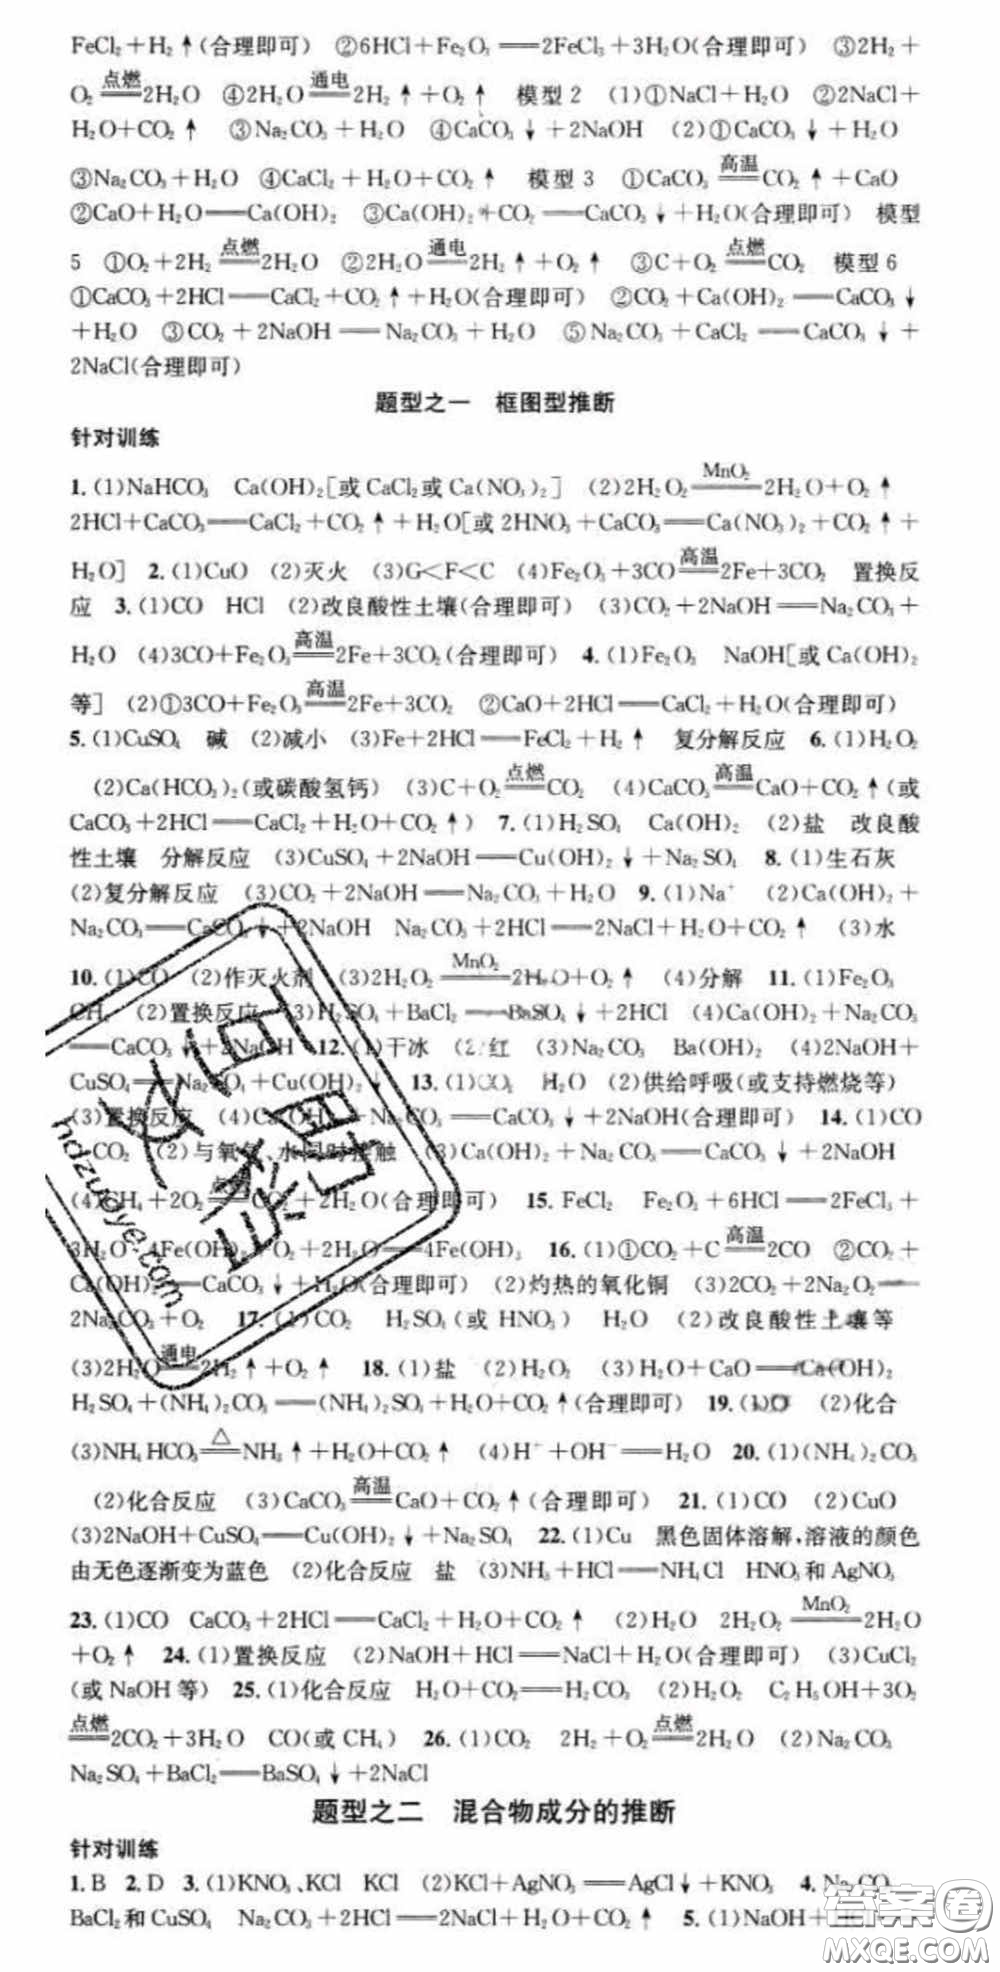 FeCl₂+H₂↑(合理即可) ②6HCl+Fe₂O₃══2FeCl₃+3H₂O(合理即可) ③2H₂+
O₂ 点燃══ 2H₂O ④2H₂O 通电══ 2H₂↑+O₂↑ 模型2 (1)①NaCl+H₂O ②2NaCl+
H₂O+CO₂↑ ③Na₂CO₃+H₂O ④CaCO₃↓+2NaOH (2)①CaCO₃↓+H₂O
③Na₂CO₃+H₂O ④CaCl₂+H₂O+CO₂↑ 模型3 ①CaCO₃ 高温══ CO₂↑+CaO
②CaO+H₂O══Ca(OH)₂ ③Ca(OH)₂+CO₂══CaCO₃↓+H₂O(合理即可) 模型
5 ①O₂+2H₂ 点燃══ 2H₂O ②2H₂O 通电══ 2H₂↑+O₂↑ ③C+O₂ 点燃══ CO₂ 模型6
①CaCO₃+2HCl══CaCl₂+CO₂↑+H₂O(合理即可) ②CO₂+Ca(OH)₂══CaCO₃↓
+H₂O ③CO₂+2NaOH══Na₂CO₃+H₂O ⑤Na₂CO₃+CaCl₂══CaCO₃↓+
2NaCl(合理即可)
题型之一 框图型推断
针对训练
1.(1)NaHCO₃ Ca(OH)₂[或CaCl₂或Ca(NO₃)₂] (2)2H₂O₂ MnO₂══ 2H₂O+O₂↑
2HCl+CaCO₃══CaCl₂+CO₂↑+H₂O[或2HNO₃+CaCO₃══Ca(NO₃)₂+CO₂↑+
H₂O] 2.(1)CuO (2)灭火 (3)G<F<C (4)Fe₂O₃+3CO 高温══ 2Fe+3CO₂ 置换反
应 3.(1)CO HCl (2)改良酸性土壤(合理即可) (3)CO₂+2NaOH══Na₂CO₃+
H₂O (4)3CO+Fe₂O₃ 高温══ 2Fe+3CO₂(合理即可) 4.(1)Fe₂O₃ NaOH[或Ca(OH)₂
等] (2)①3CO+Fe₂O₃ 高温══ 2Fe+3CO₂ ②CaO+2HCl══CaCl₂+H₂O(合理即可)
5.(1)CuSO₄ 碱 (2)减小 (3)Fe+2HCl══FeCl₂+H₂↑ 复分解反应 6.(1)H₂O₂
(2)Ca(HCO₃)₂(或碳酸氢钙) (3)C+O₂ 点燃══ CO₂ (4)CaCO₃ 高温══ CaO+CO₂↑(或
CaCO₃+2HCl══CaCl₂+H₂O+CO₂↑) 7.(1)H₂SO₄ Ca(OH)₂ (2)盐 改良酸
性土壤 分解反应 (3)CuSO₄+2NaOH══Cu(OH)₂↓+Na₂SO₄ 8.(1)生石灰
(2)复分解反应 (3)CO₂+2NaOH══Na₂CO₃+H₂O 9.(1)Na⁺ (2)Ca(OH)₂+
Na₂CO₃══CaCO₃↓+2NaOH Na₂CO₃+2HCl══2NaCl+H₂O+CO₂↑ (3)水
10.(1)CO (2)作灭火剂 (3)2H₂O₂ MnO₂══ 2H₂O+O₂↑ (4)分解 11.(1)Fe₂O₃
CH₄ (2)置换反应 (3)H₂SO₄+BaCl₂══BaSO₄↓+2HCl (4)Ca(OH)₂+Na₂CO₃
══CaCO₃↓+2NaOH 12.(1)干冰 (2)红 (3)Na₂CO₃ Ba(OH)₂ (4)2NaOH+
CuSO₄══Na₂SO₄+Cu(OH)₂↓ 13.(1)CO₂ H₂O (2)供给呼吸(或支持燃烧等)
(3)置换反应 (4)Ca(OH)₂+Na₂CO₃══CaCO₃↓+2NaOH(合理即可) 14.(1)CO
CO₂ (2)与氧气、水同时接触 (3)Ca(OH)₂+Na₂CO₃══CaCO₃↓+2NaOH
(4)CH₄+2O₂ 点燃══ CO₂+2H₂O(合理即可) 15.FeCl₂ Fe₂O₃+6HCl══2FeCl₃+
3H₂O 4Fe(OH)₂+O₂+2H₂O══4Fe(OH)₃ 16.(1)①CO₂+C 高温══ 2CO ②CO₂+
Ca(OH)₂══CaCO₃↓+H₂O(合理即可) (2)灼热的氧化铜 (3)2CO₂+2Na₂O₂══
2Na₂CO₃+O₂ 17.(1)CO₂ H₂SO₄(或HNO₃) H₂O (2)改良酸性土壤等
(3)2H₂O 通电══ 2H₂↑+O₂↑ 18.(1)盐 (2)H₂O₂ (3)H₂O+CaO══Ca(OH)₂
H₂SO₄+(NH₄)₂CO₃══(NH₄)₂SO₄+H₂O+CO₂↑(合理即可) 19.(1) (2)化合
(3)NH₄HCO₃ △══ NH₃↑+H₂O+CO₂↑ (4)H⁺+OH⁻══H₂O 20.(1)(NH₄)₂CO₃
(2)化合反应 (3)CaCO₃ 高温══ CaO+CO₂↑(合理即可) 21.(1)CO (2)CuO
(3)2NaOH+CuSO₄══Cu(OH)₂↓+Na₂SO₄ 22.(1)Cu 黑色固体溶解,溶液的颜色
由无色逐渐变为蓝色 (2)化合反应 盐 (3)NH₃+HCl══NH₄Cl HNO₃和AgNO₃
23.(1)CO CaCO₃+2HCl══CaCl₂+H₂O+CO₂↑ (2)H₂O 2H₂O₂ MnO₂══ 2H₂O
+O₂↑ 24.(1)置换反应 (2)NaOH+HCl══NaCl+H₂O(合理即可) (3)CuCl₂
(或NaOH等) 25.(1)化合反应 H₂O+CO₂══H₂CO₃ (2)H₂O₂ C₂H₅OH+3O₂
点燃══ 2CO₂+3H₂O CO(或CH₄) 26.(1)CO₂ 2H₂+O₂ 点燃══ 2H₂O (2)Na₂CO₃
Na₂SO₄+BaCl₂══BaSO₄↓+2NaCl
题型之二 混合物成分的推断
针对训练
1.B 2.D 3.(1)KNO₃、KCl KCl (2)KCl+AgNO₃══AgCl↓+KNO₃ 4.Na₂CO₃
BaCl₂和CuSO₄ Na₂CO₃+2HCl══2NaCl+H₂O+CO₂↑ 5.(1)NaOH+
hdzuoye.com
答案圈
MXQE.COM